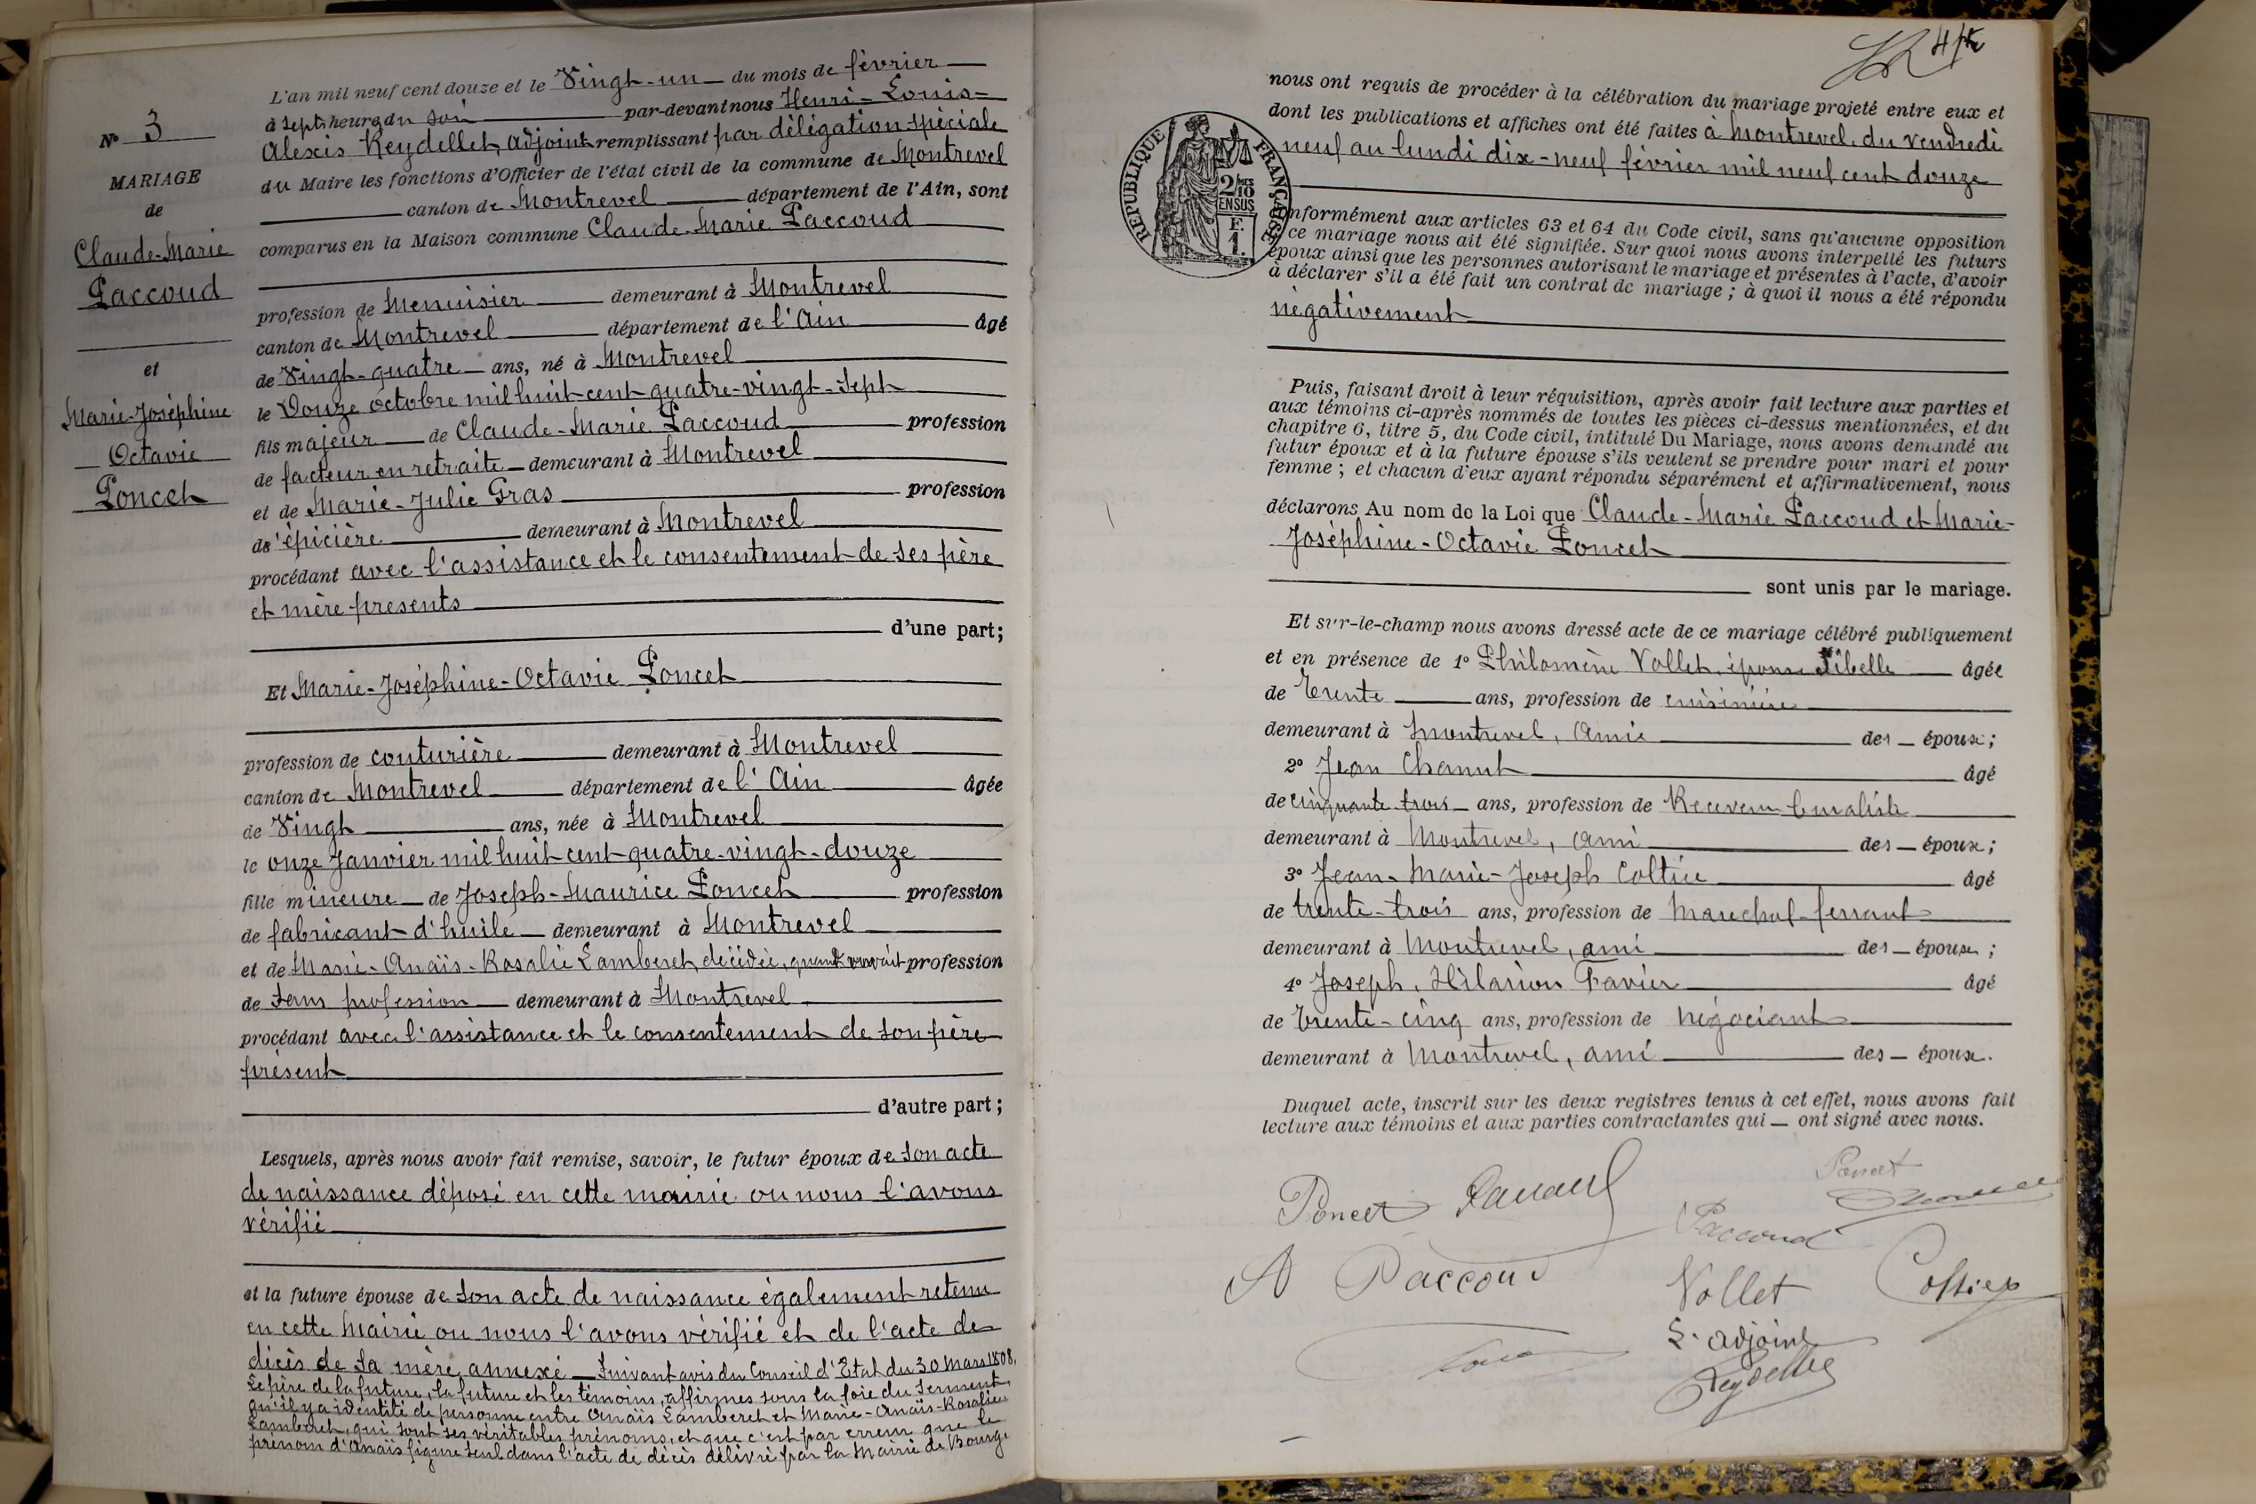 L'an mil neuf cent douze et le Vingt-un du mois de février
à sept heures du soir par-devant nous Henri-Louis-
Alexis Reydellet, adjoint remplissant par délégation spéciale
du Maire les fonctions d'Officier de l'état civil de la commune de Montrevel
canton de Montrevel département de l'Ain, sont
comparus en la Maison commune Claude-Marie Paccoud
N° 3
MARIAGE
de
Claude-Marie
Paccoud
et
Marie-Joséphine
Octavie
Poncet
profession de Menuisier demeurant à Montrevel
canton de Montrevel département de l'Ain âgé
de Vingt-quatre ans, né à Montrevel
le Douze octobre mil huit cent quatre-vingt-sept
fils majeur de Claude-Marie Paccoud profession
de facteur en retraite demeurant à Montrevel
et de Marie-Julie Gras profession
de épicière demeurant à Montrevel
procédant avec l'assistance et le consentement de ses père
et mère présents
d'une part;
Et Marie-Joséphine-Octavie Poncet
profession de couturière demeurant à Montrevel
canton de Montrevel département de l'Ain âgée
de Vingt ans, née à Montrevel
le onze Janvier mil huit cent quatre-vingt-douze
fille mineure de Joseph-Maurice Poncet profession
de fabricant d'huile demeurant à Montrevel
et de Marie-Anaïs-Rosalie Lamberet, décédée, quand vivait profession
de sans profession demeurant à Montrevel
procédant avec l'assistance et le consentement de son père
présent
d'autre part;
Lesquels, après nous avoir fait remise, savoir, le futur époux de son acte
de naissance déposé en cette mairie ou nous l'avons
vérifié
et la future épouse de son acte de naissance également retenu
en cette Mairie ou nous l'avons vérifié et de l'acte de
décès de sa mère annexé Suivant avis du Conseil d'Etat du 30 Mars 1808,
Le père de la future, la future et les témoins, affirmes sous la foie du serment,
qu'il y a identité de personne entre Anaïs Lamberet et Marie-Anaïs-Rosalie
Lamberet, qui sont ses véritables prénoms, et que c'est par erreur que le
prénom d'Anaïs figure seul dans l'acte de décès délivré par la Mairie de Bourg.
nous ont requis de procéder à la célébration du mariage projeté entre eux et
dont les publications et affiches ont été faites à Montrevel, du vendredi
neuf au lundi dix-neuf février mil neuf cent douze
RÉPUBLIQUE FRANÇAISE
2/10 EN SUS
F.
1.
conformément aux articles 63 et 64 du Code civil, sans qu'aucune opposition
à ce mariage nous ait été signifiée. Sur quoi nous avons interpellé les futurs
époux ainsi que les personnes autorisant le mariage et présentes à l'acte, d'avoir
à déclarer s'il a été fait un contrat de mariage; à quoi il nous a été répondu
négativement
Puis, faisant droit à leur réquisition, après avoir fait lecture aux parties et
aux témoins ci-après nommés de toutes les pièces ci-dessus mentionnées, et du
chapitre 6, titre 5, du Code civil, intitulé Du Mariage, nous avons demandé au
futur époux et à la future épouse s'ils veulent se prendre pour mari et pour
femme; et chacun d'eux ayant répondu séparément et affirmativement, nous
déclarons Au nom de la Loi que Claude-Marie Paccoud et Marie-
Joséphine-Octavie Poncet
sont unis par le mariage.
Et sur-le-champ nous avons dressé acte de ce mariage célébré publiquement
et en présence de 1° Philomène Vollet, épouse Sibelle âgée
de Trente ans, profession de cuisinière
demeurant à Montrevel, Amie des époux;
2° Jean Chanut âgé
de cinquante trois ans, profession de Receveur buraliste
demeurant à Montrevel, ami des époux;
3° Jean-Marie-Joseph Coltier âgé
de trente-trois ans, profession de Maréchal-ferrant
demeurant à Montrevel, ami des époux;
4° Joseph, Hilarion Favier âgé
de Trente-cinq ans, profession de négociant
demeurant à Montrevel, ami des époux.
Duquel acte, inscrit sur les deux registres tenus à cet effet, nous avons fait
lecture aux témoins et aux parties contractantes qui ont signé avec nous.
Poncet
Poncet
Paccoud
Paccoud
Vollet
L'adjoint
Reydellet